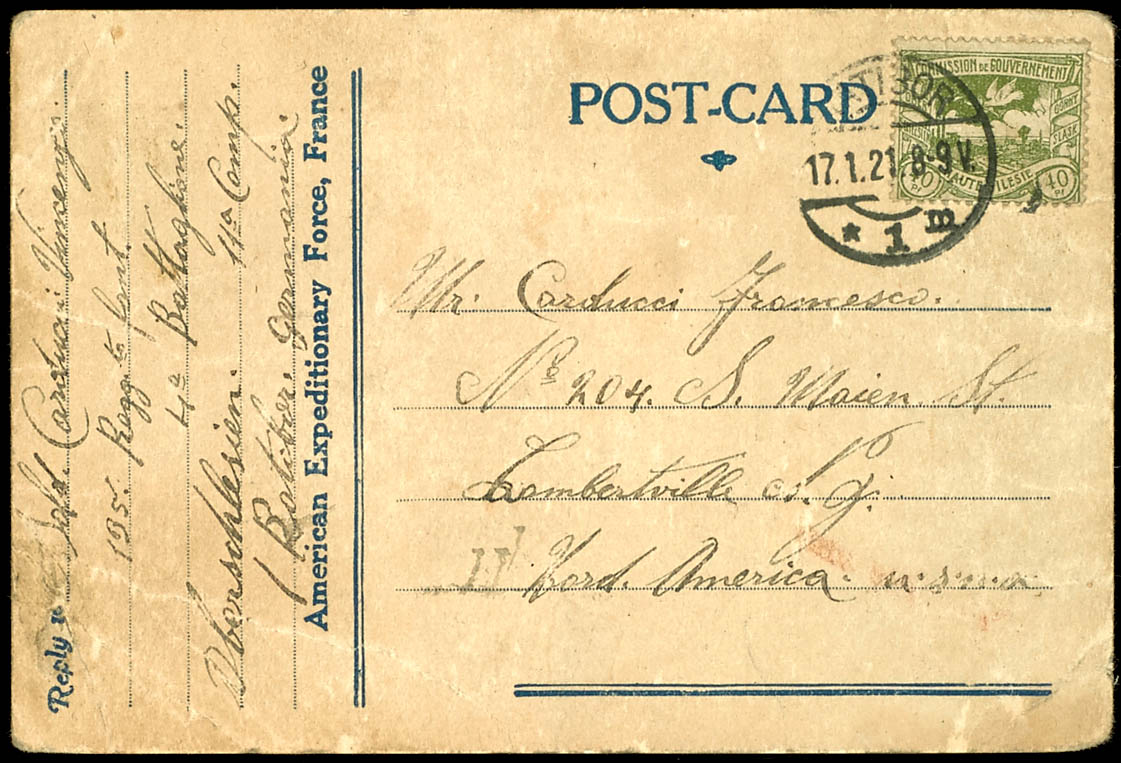 POST-CARD
COMMISSION DE GOUVERNEMENT
GORNY
SLASK
HAUTE SILESIE
40 PF
40 PF
RATIBOR
17.1.21. 8-9 V.
* 1 m
Mr. Carducci Francesco.
No 204. S. Maien St.
Lambertville n. J.
Nord. America. u. s. a
Reply to Sold. Carducci Vincenzo
135. Regg.to fant.
4a Battaglione.
Oberschlesien. 11a Comp.
(Ratibor. Germania.
American Expeditionary Force, France